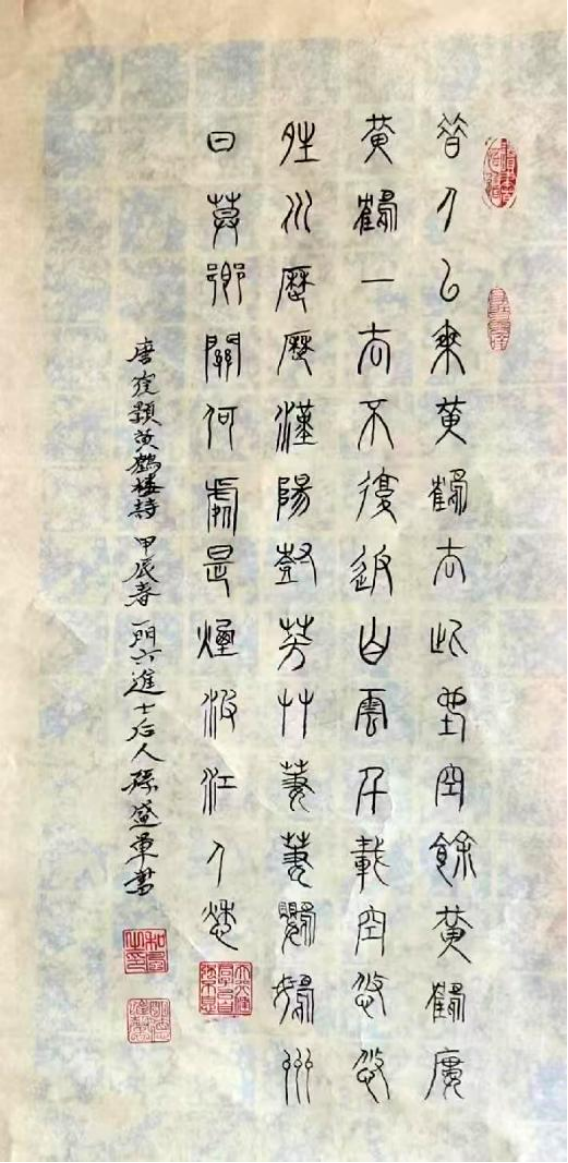 昔人已乘黃鶴去此地空餘黃鶴廔
黃鶴一去不復返白雲千載空悠悠
夝川歷歷漢陽尌芳艸萋萋鸚鵡州
日莫鄉關何處是煙波江人愁
唐崔顥黃鶴樓詩 甲辰春 一門六進士后人孫盛軍書